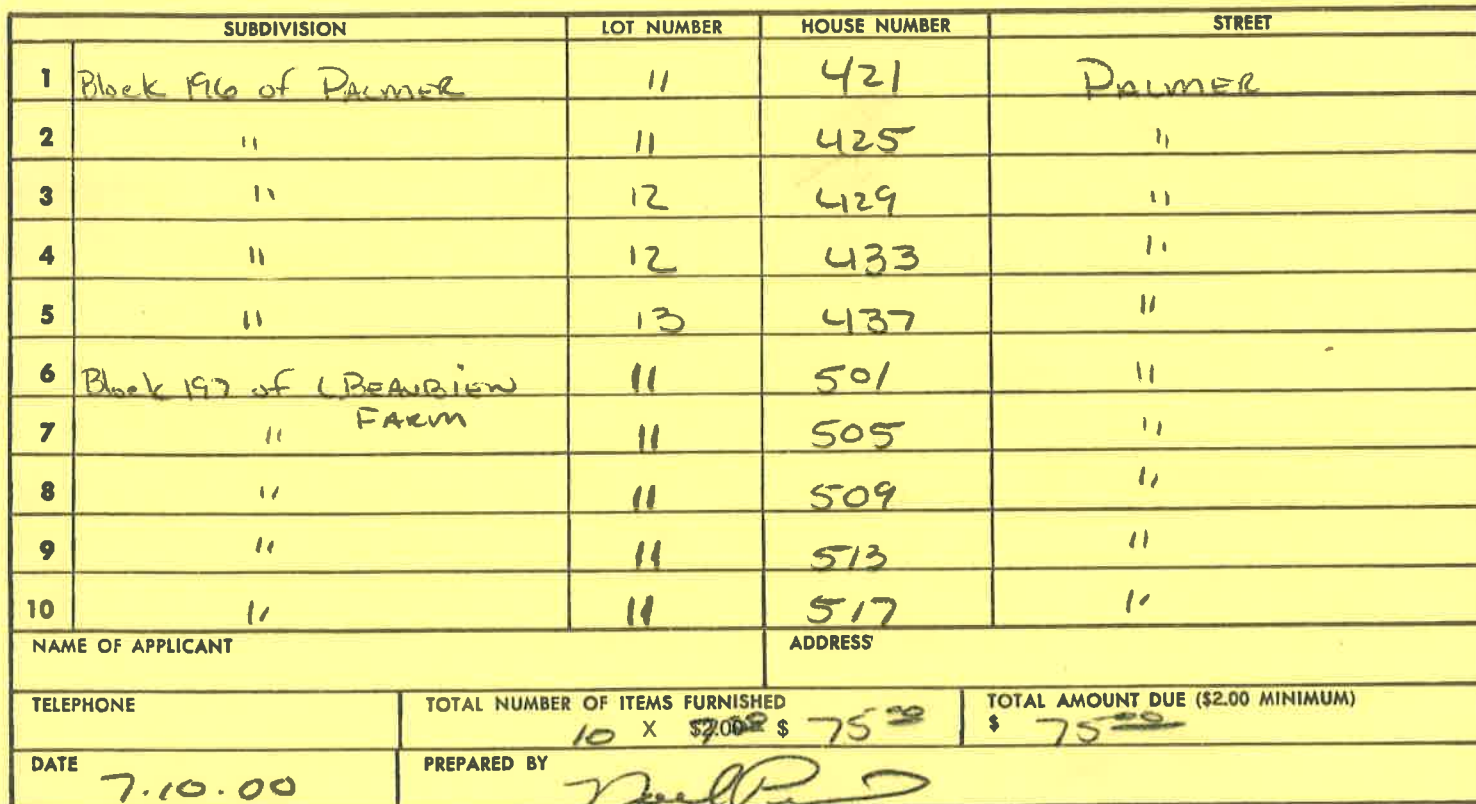 SUBDIVISION LOT NUMBER HOUSE NUMBER STREET
1 Block 196 of PALMER 11 421 PALMER
2 " 11 425 "
3 " 12 429 "
4 " 12 433 "
5 " 13 437 "
6 Block 197 of BEAUBIEN 11 501 "
FARM
7 " 11 505 "
8 " 11 509 "
9 " 11 513 "
10 " 11 517 "
NAME OF APPLICANT ADDRESS
TELEPHONE TOTAL NUMBER OF ITEMS FURNISHED TOTAL AMOUNT DUE ($2.00 MINIMUM)
10 X $ 75 00 $ 75 00
DATE PREPARED BY
7.10.00